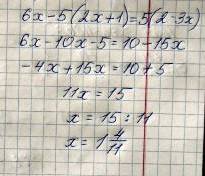 6x-5(2x+1)=5(2-3x)
6x-10x-5=10-15x
-4x+15x=10+5
11x=15
x=15:11
x=1 4/11